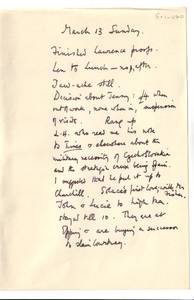 March 13 Sunday.
Finished Lawrence proofs.
Len to Lunch – nap, after.
Jaw-ache still.
Decision about Jenny: when
out of work, none when in, suspension
of visits. Rang up
L-H. who read me his note
to Times & elsewhere about the
military necessity of Czechoslovakia
and the strategic crisis being
I suggested that he put it up to
Churchill. first love, with Mrs
John & Lucie to high tea.
stayed till 10. They are at
Epping & are buying a successor
to